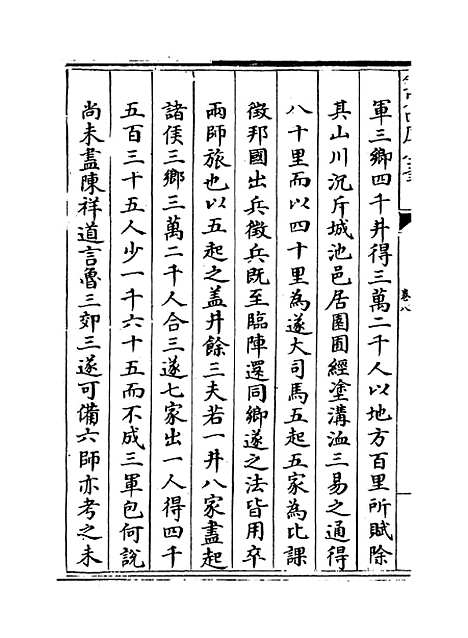 軍三鄉四千井得三萬二千人以地方百里所賦除
其山川沉斥城池邑居園囿經塗溝洫三易之通得
八十里而以四十里為遂大司馬五起五家為比課
徵邦國出兵徵兵既至臨陣還同鄉遂之法皆用卒
兩師旅也以五起之盖井餘三夫若一井八家盡起
諸侯三鄉三萬二千人合三遂七家出一人得四千
五百三十五人少一千六十五而不成三軍包何說
尚未盡陳祥道言魯三郊三遂可備六師亦考之未
卷八